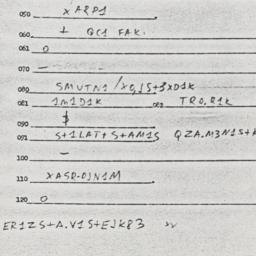 050 XARP1
060 ⊥ QC1 FAK.
061 0
070 —
080
081 1M1D1K 082 TRO.R1K
090 $
091 S+1LAT+S+AM1S QZA.M3N1S+K
100 —
110 XASR-OJN1M
120 0
ER1ZS+A.V1S+EJK83